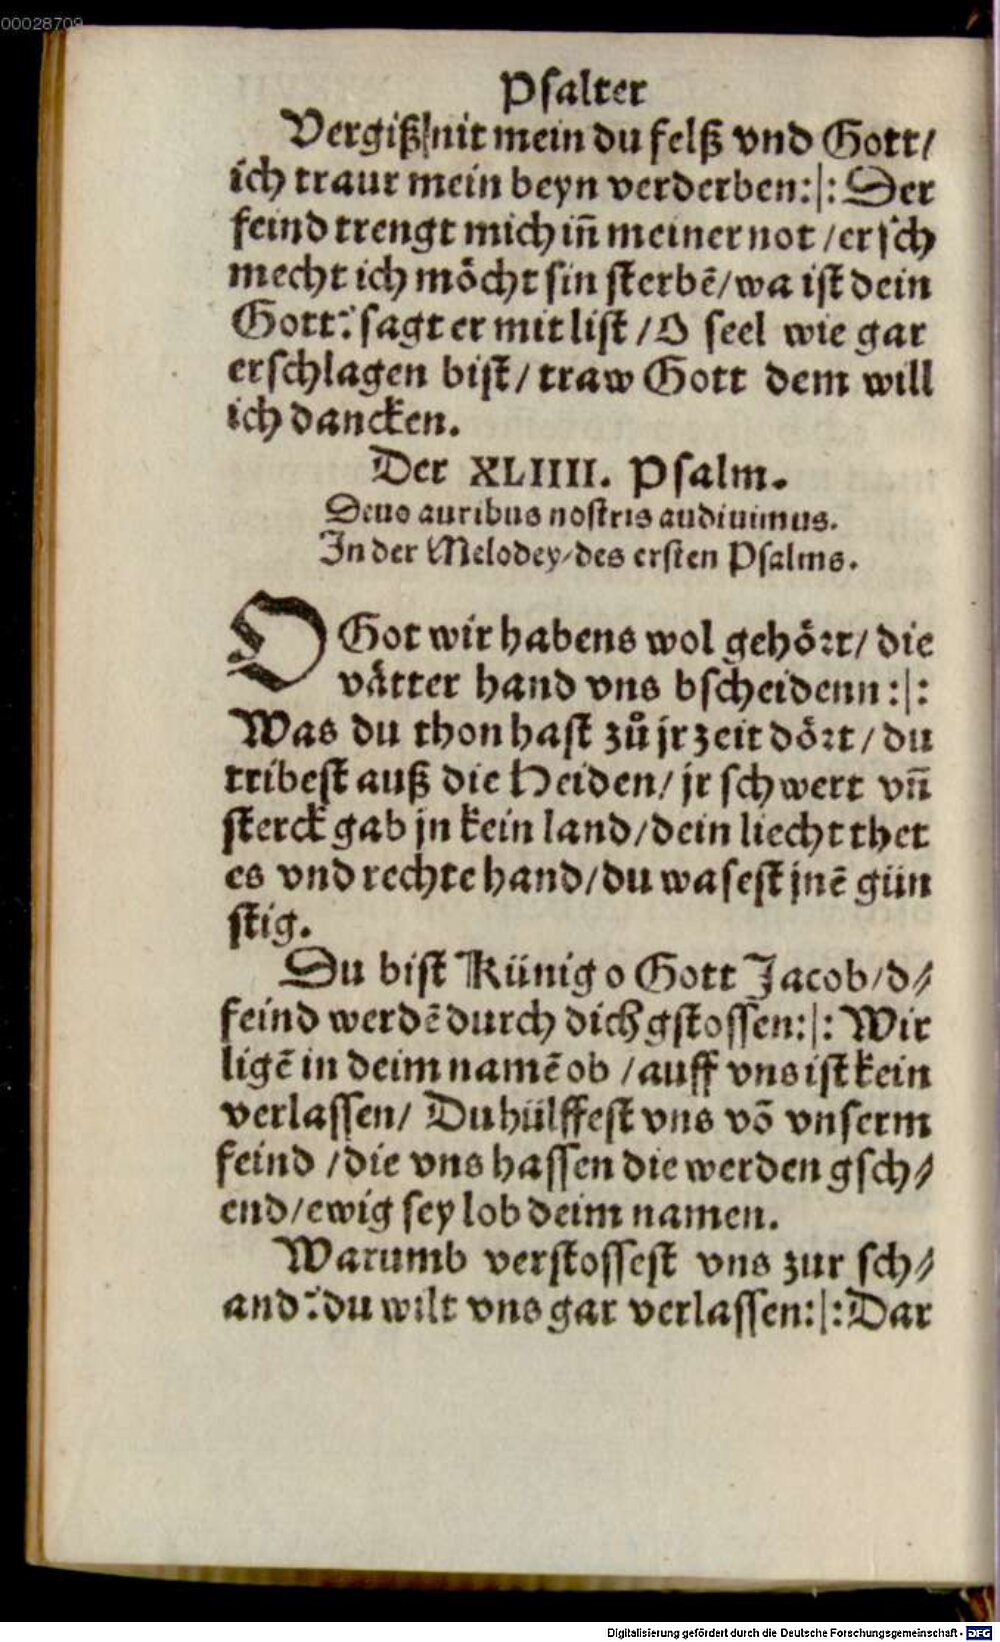 00028709
Psalter
Vergiß nit mein du felß vnd Gott/
ich traur mein beyn verderben:|: Der
feind trengt mich iñ meiner not / er sch
mecht ich möcht sin sterbẽ/ wa ist dein
Gott? sagt er mit list / O seel wie gar
erschlagen bist / traw Gott dem will
ich dancken.
Der XLIIII. Psalm.
Deus auribus nostris audiuimus.
In der Melodey/ des ersten Psalms.
O Got wir habens wol gehört/ die
vätter hand vns bscheidenn:|:
Was du thon hast zů jr zeit dört / du
tribest auß die Heiden/ jr schwert vñ
sterck gab jn kein land/ dein liecht thet
es vnd rechte hand/ du wasest jnẽ gün
stig.
Du bist Künig o Gott Jacob/ d⸗
feind werdẽ durch dich gstossen:|: Wir
ligẽ in deim namẽ ob / auff vns ist kein
verlassen/ Du hülffest vns võ vnserm
feind / die vns hassen die werden gsch⸗
end/ ewig sey lob deim namen.
Warumb verstossest vns zur sch⸗
and? du wilt vns gar verlassen:|: Dar
Digitalisierung gefördert durch die Deutsche Forschungsgemeinschaft - DFG